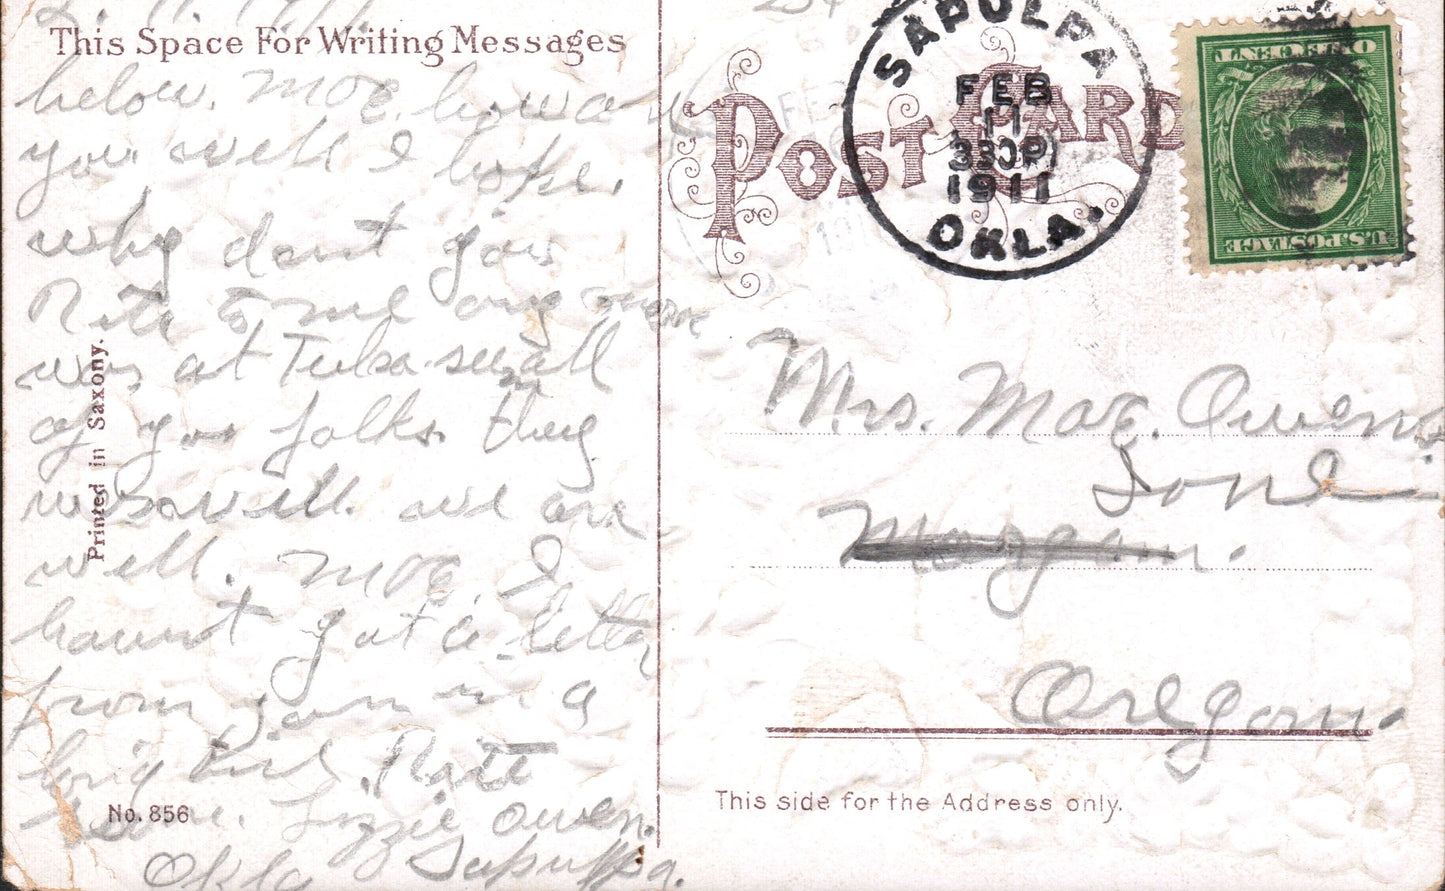 2. 11. 1911
This Space For Writing Messages
below. Moe. how are
you well I hope.
why dont you
Rite to me any more
was at Tulsa. seen all
of you folks. they
was well. we are
well. Moe. I
havnt got a letter
from you in a
long time. Rite
soon. Lizzie Owen.
Okla Sapulpa.
Printed in Saxony.
No. 856
POST CARD
SAPULPA
FEB
11
330P
1911
OKLA.
ONE CENT
U.S. POSTAGE
Mrs. Moe. Owens
Ione
Morgan.
Oregon.
This side for the Address only.